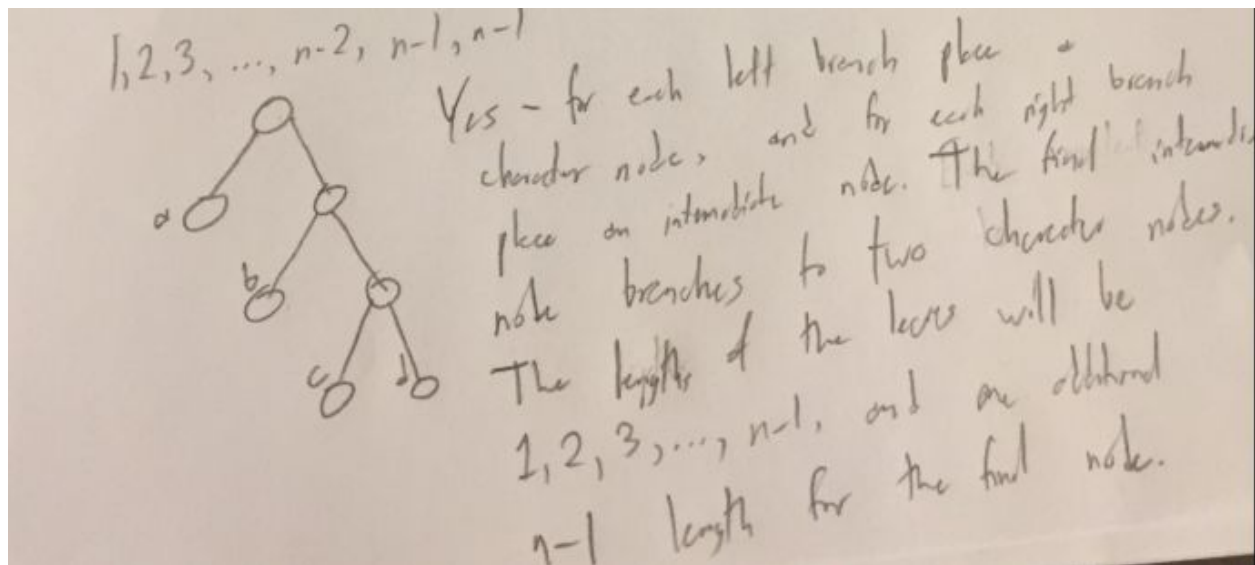 1,2,3, ..., n-2, n-1, n-1
Yes - for each left branch place a
character node, and for each right branch
place an intermediate node. The final intermedi
node branches to two character nodes.
The lengths of the leaves will be
1, 2, 3, ..., n-1, and one additional
n-1 length for the final node.
a
b
c
d